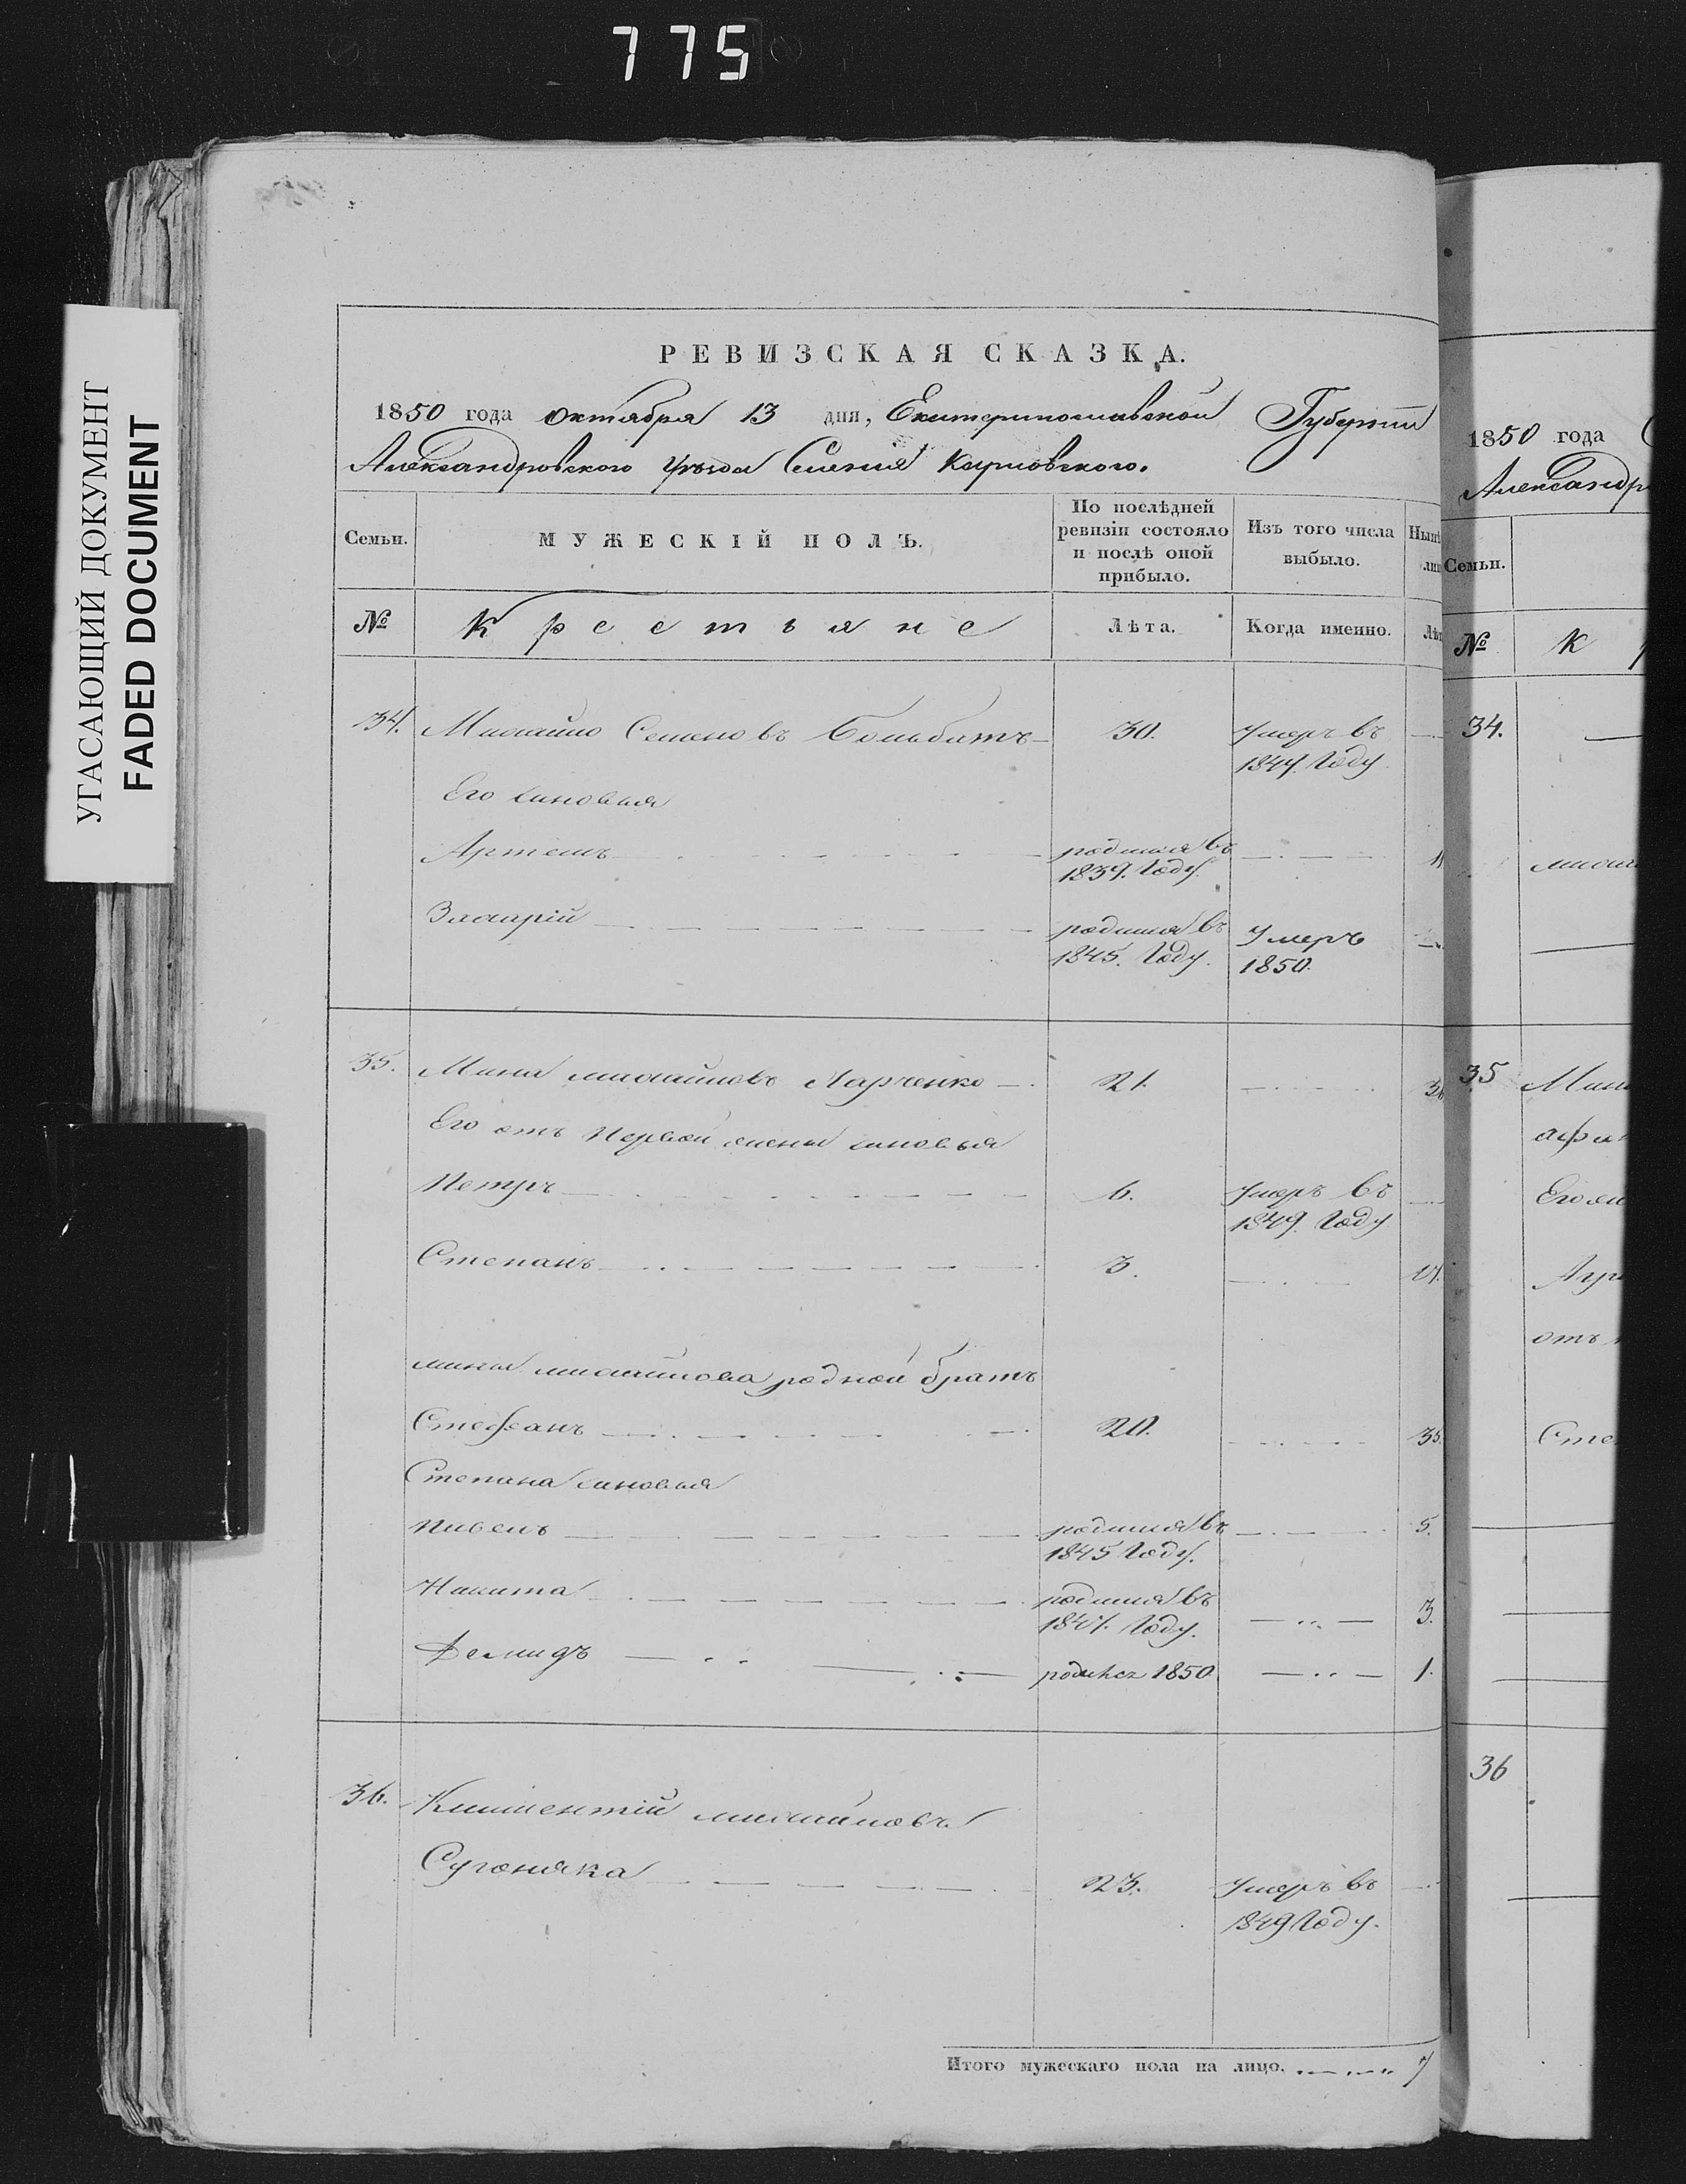 775
УГАСАЮЩИЙ ДОКУМЕНТ
FADED DOCUMENT
РЕВИЗСКАЯ СКАЗКА.
1850 года октября 13 дня, Екатеринославской Губернии
Александровского уѣзда Селенія
Семьи.
МУЖЕСКІЙ ПОЛЪ.
По послѣдней
ревизіи состояло
и послѣ оной
прибыло.
Изъ того числа
выбыло.
№
Крестьяне
Лѣта.
Когда именно.
34. Михайло Семеновъ
30.
Умеръ въ
1847. Году
Его сыновья
Артемъ
родился въ
1839. Году.
родился въ
1845. Году.
Умеръ
1850.
35. Мина Михайловъ Харченко
21.
Его отъ Первой жены сыновья
Петръ
6.
Умеръ въ
1849. Году
Степанъ
3.
Мины Михайлова родной братъ
Стефанъ
20.
35.
Степана сыновья
родился въ
1845 Году.
5.
Никита
родился въ
1847. Году.
3.
Демидъ
родился 1850
1.
36. Климентій Михайловъ
Сугоняка
23.
Умеръ въ
1849 Году.
Итого мужескаго пола на лицо. 7
1850 года
Семьи.
№ К
34.
35
36